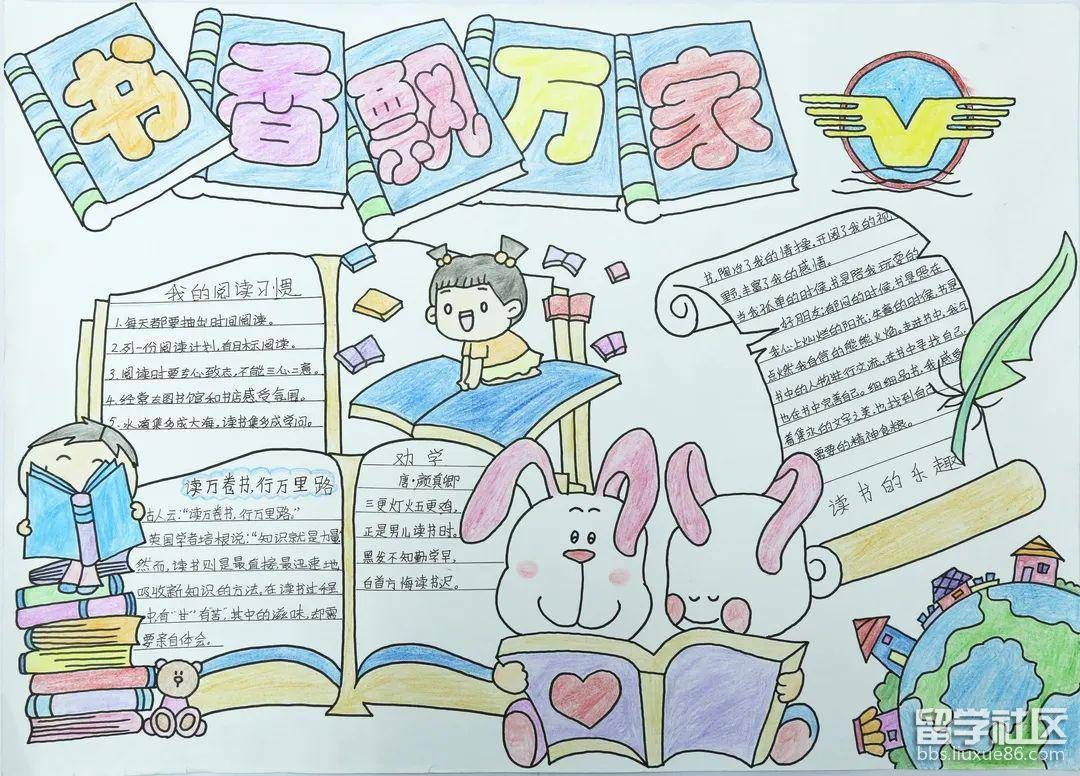 书香飘万家
我的阅读习惯
1.每天都要抽出时间阅读。
2.列一份阅读计划,有目标阅读。
3.阅读时要专心致志,不能三心二意。
4.经常去图书馆和书店感受氛围。
5.水滴集多成大海,读书集多成学问。
读万卷书,行万里路
古人云:“读万卷书,行万里路。”
英国学者培根说:“知识就是力量
然而,读书则是最直接最迅速地
吸收新知识的方法,在读书过程
中,有“甘”有苦,其中的滋味,却需
要亲自体会。
劝学
唐·颜真卿
三更灯火五更鸡,
正是男儿读书时。
黑发不知勤学早,
白首方悔读书迟。
书,陶冶了我的情操,开阔了我的视
野,丰富了我的感情。
当我孤单的时候,书是陪我玩耍的
好朋友;郁闷的时候,书是照在
我心上灿烂的阳光;失意的时候,书是
点燃我自信的熊熊火焰。走进书中,我与
书中的人物进行交流,在书中寻找自己
也在书中完善自己。细细品书,我感受
着隽永的文字之美,也找到自己
需要的精神食粮。
读书的乐趣
留学社区
bbs.liuxue86.com